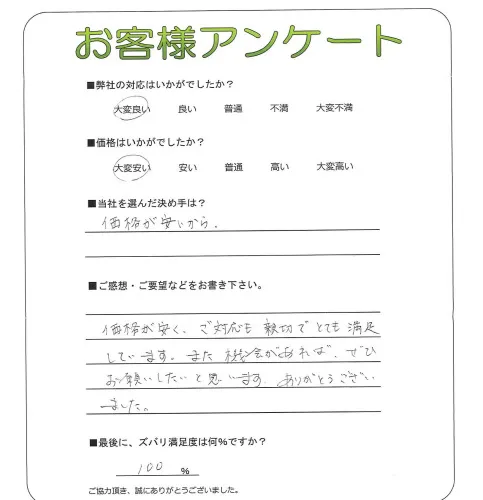 お客様アンケート
■弊社の対応はいかがでしたか?
大変良い 良い 普通 不満 大変不満
■価格はいかがでしたか?
大変安い 安い 普通 高い 大変高い
■当社を選んだ決め手は?
価格が安いから。
■ご感想・ご要望などをお書き下さい。
価格が安く、ご対応も親切でとても満足
しています。また機会があれば、ぜひ
お願いしたいと思います。ありがとうござい
ました。
■最後に、ズバリ満足度は何%ですか?
100 %
ご協力頂き、誠にありがとうございました。